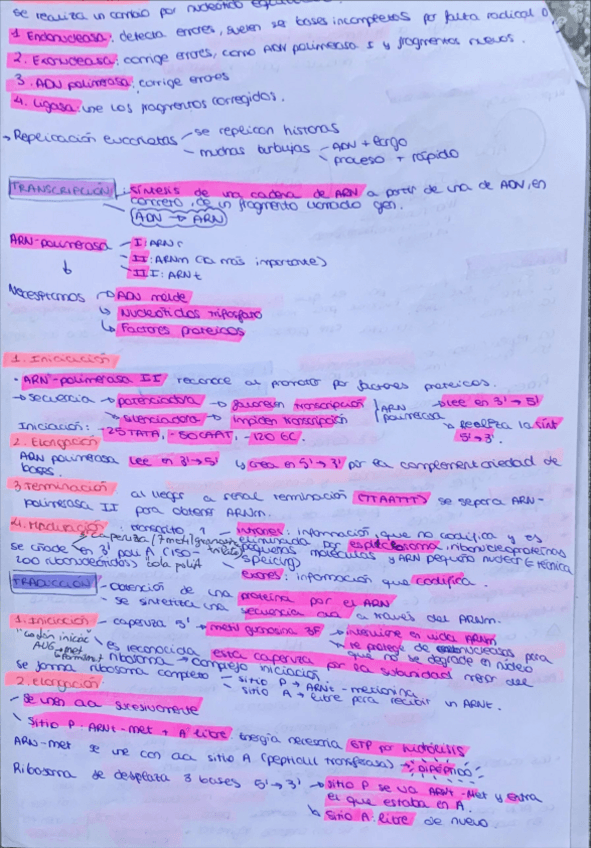 se realiza un cambio por nucleótido
1. Endonucleasa: detecta errores, suelen ser bases incompletas por falta radical o
2. Exonucleasa: corrige errores, como ADN polimerasa I y fragmentos nuevos.
3. ADN polimerasa: corrige errores
4. Ligasa: une los fragmentos corregidos.
→ Replicación eucariotas - se replican histonas
- muchas burbujas - ADN + largo
- proceso + rápido
TRANSCRIPCIÓN: síntesis de una cadena de ARN a partir de una de ADN, en
concreto, de un fragmento llamado gen.
(ADN → ARN)
ARN-polimerasa - I: ARNr
II: ARNm (la más importante)
III: ARNt
Necesitamos → ADN molde
↳ Nucleótidos trifosfato
↳ Factores proteicos
1. Iniciación
· ARN-polimerasa II reconoce al promotor por factores proteicos.
→ secuencia → potenciadora → favorecen transcripción | ARN polimerasa → Lee en 3' → 5'
→ silenciadora → impiden transcripción → Realiza la sínt 5' → 3'.
Iniciación: -25 TATA, -50 CAAT, -120 GC.
2. Elongación
ARN polimerasa lee en 3' → 5' y crea en 5' → 3' por la complementariedad de
bases.
3. Terminación al llegar a señal terminación (TTATTT) se separa ARN-
polimerasa II para obtener ARNm.
4. Maduración: transcrito 1 - intrones: información que no codifica y es
caperuza (7metilguanosina trifosfato) eliminada por espliceosoma: ribonucleoproteínas
se añade en 3' poli A (150- pequeñas moléculas y ARN pequeño nuclear (técnica
200 ribonucleótidos) cola poliA splicing)
exones: información que codifica.
TRADUCCIÓN - obtención de una proteína por el ARN
- se sintetiza una secuencia aa a través del ARNm.
1. Iniciación - caperuza 5' → metil guanosina 3F → interviene en vida ARNm
"codón inicio" → te protege de nucleasas para
AUG → met que no se degrade en núcleo
formilmet es reconocida esta caperuza por la subunidad menor del
ribosoma → complejo iniciación.
se forma ribosoma completo - sitio P → ARNt - metionina
- sitio A → libre para recibir un ARNt.
2. elongación
- se unen aa sucesivamente
- sitio P. ARNt-met + A libre. Energía necesaria GTP por hidrólisis
ARN-met se une con aa sitio A (peptidil transferasa) → DIPÉPTIDO
Ribosoma se desplaza 3 bases 5' → 3' → sitio P se va ARNt-Met y entra
el que estaba en A.
↳ sitio A: libre de nuevo